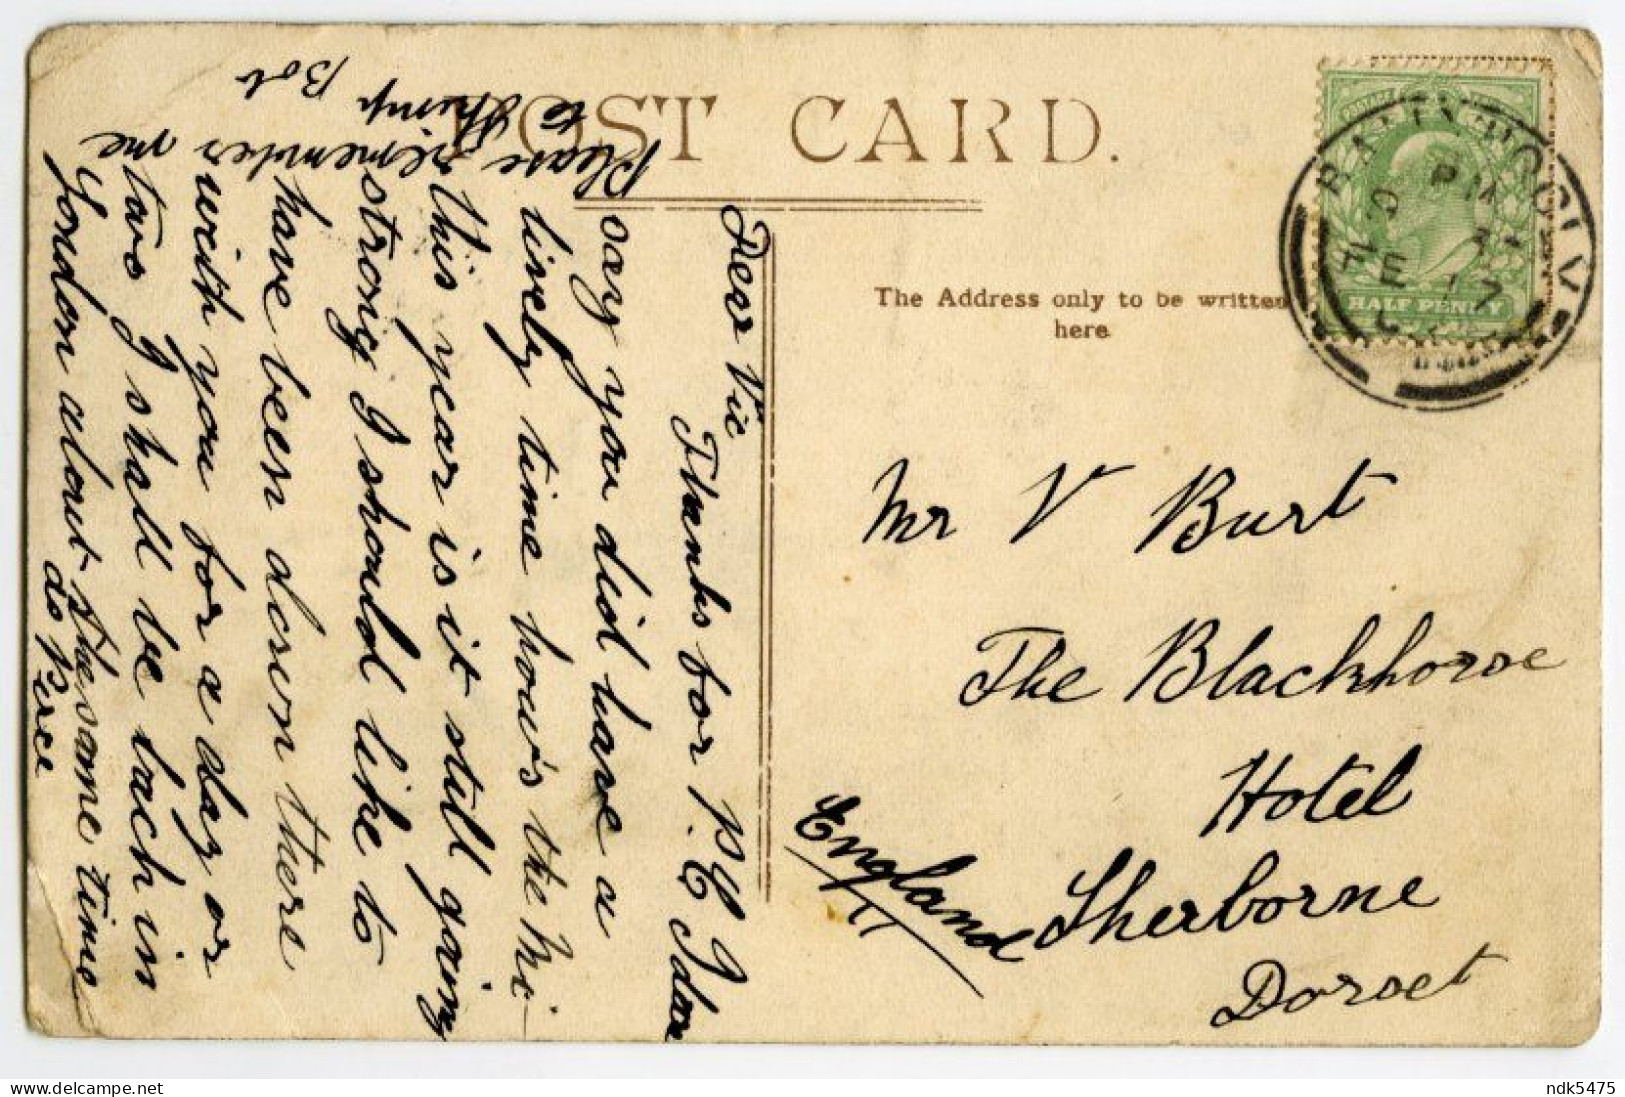 POST CARD.
The Address only to be written
here
HALF PENNY
Mr V Burt
The Blackhorse
Hotel
Sherborne
Dorset
England
Dear Vic
Thanks for P.C I dare
say you did have a
lively time how's the
this year is it still going
strong I should like to
have been down there
with you for a day or
two I shall be back in
London about the same time
as Perce
Please remember me
to Shrimp
Bob
www.delcampe.net
ndk5475